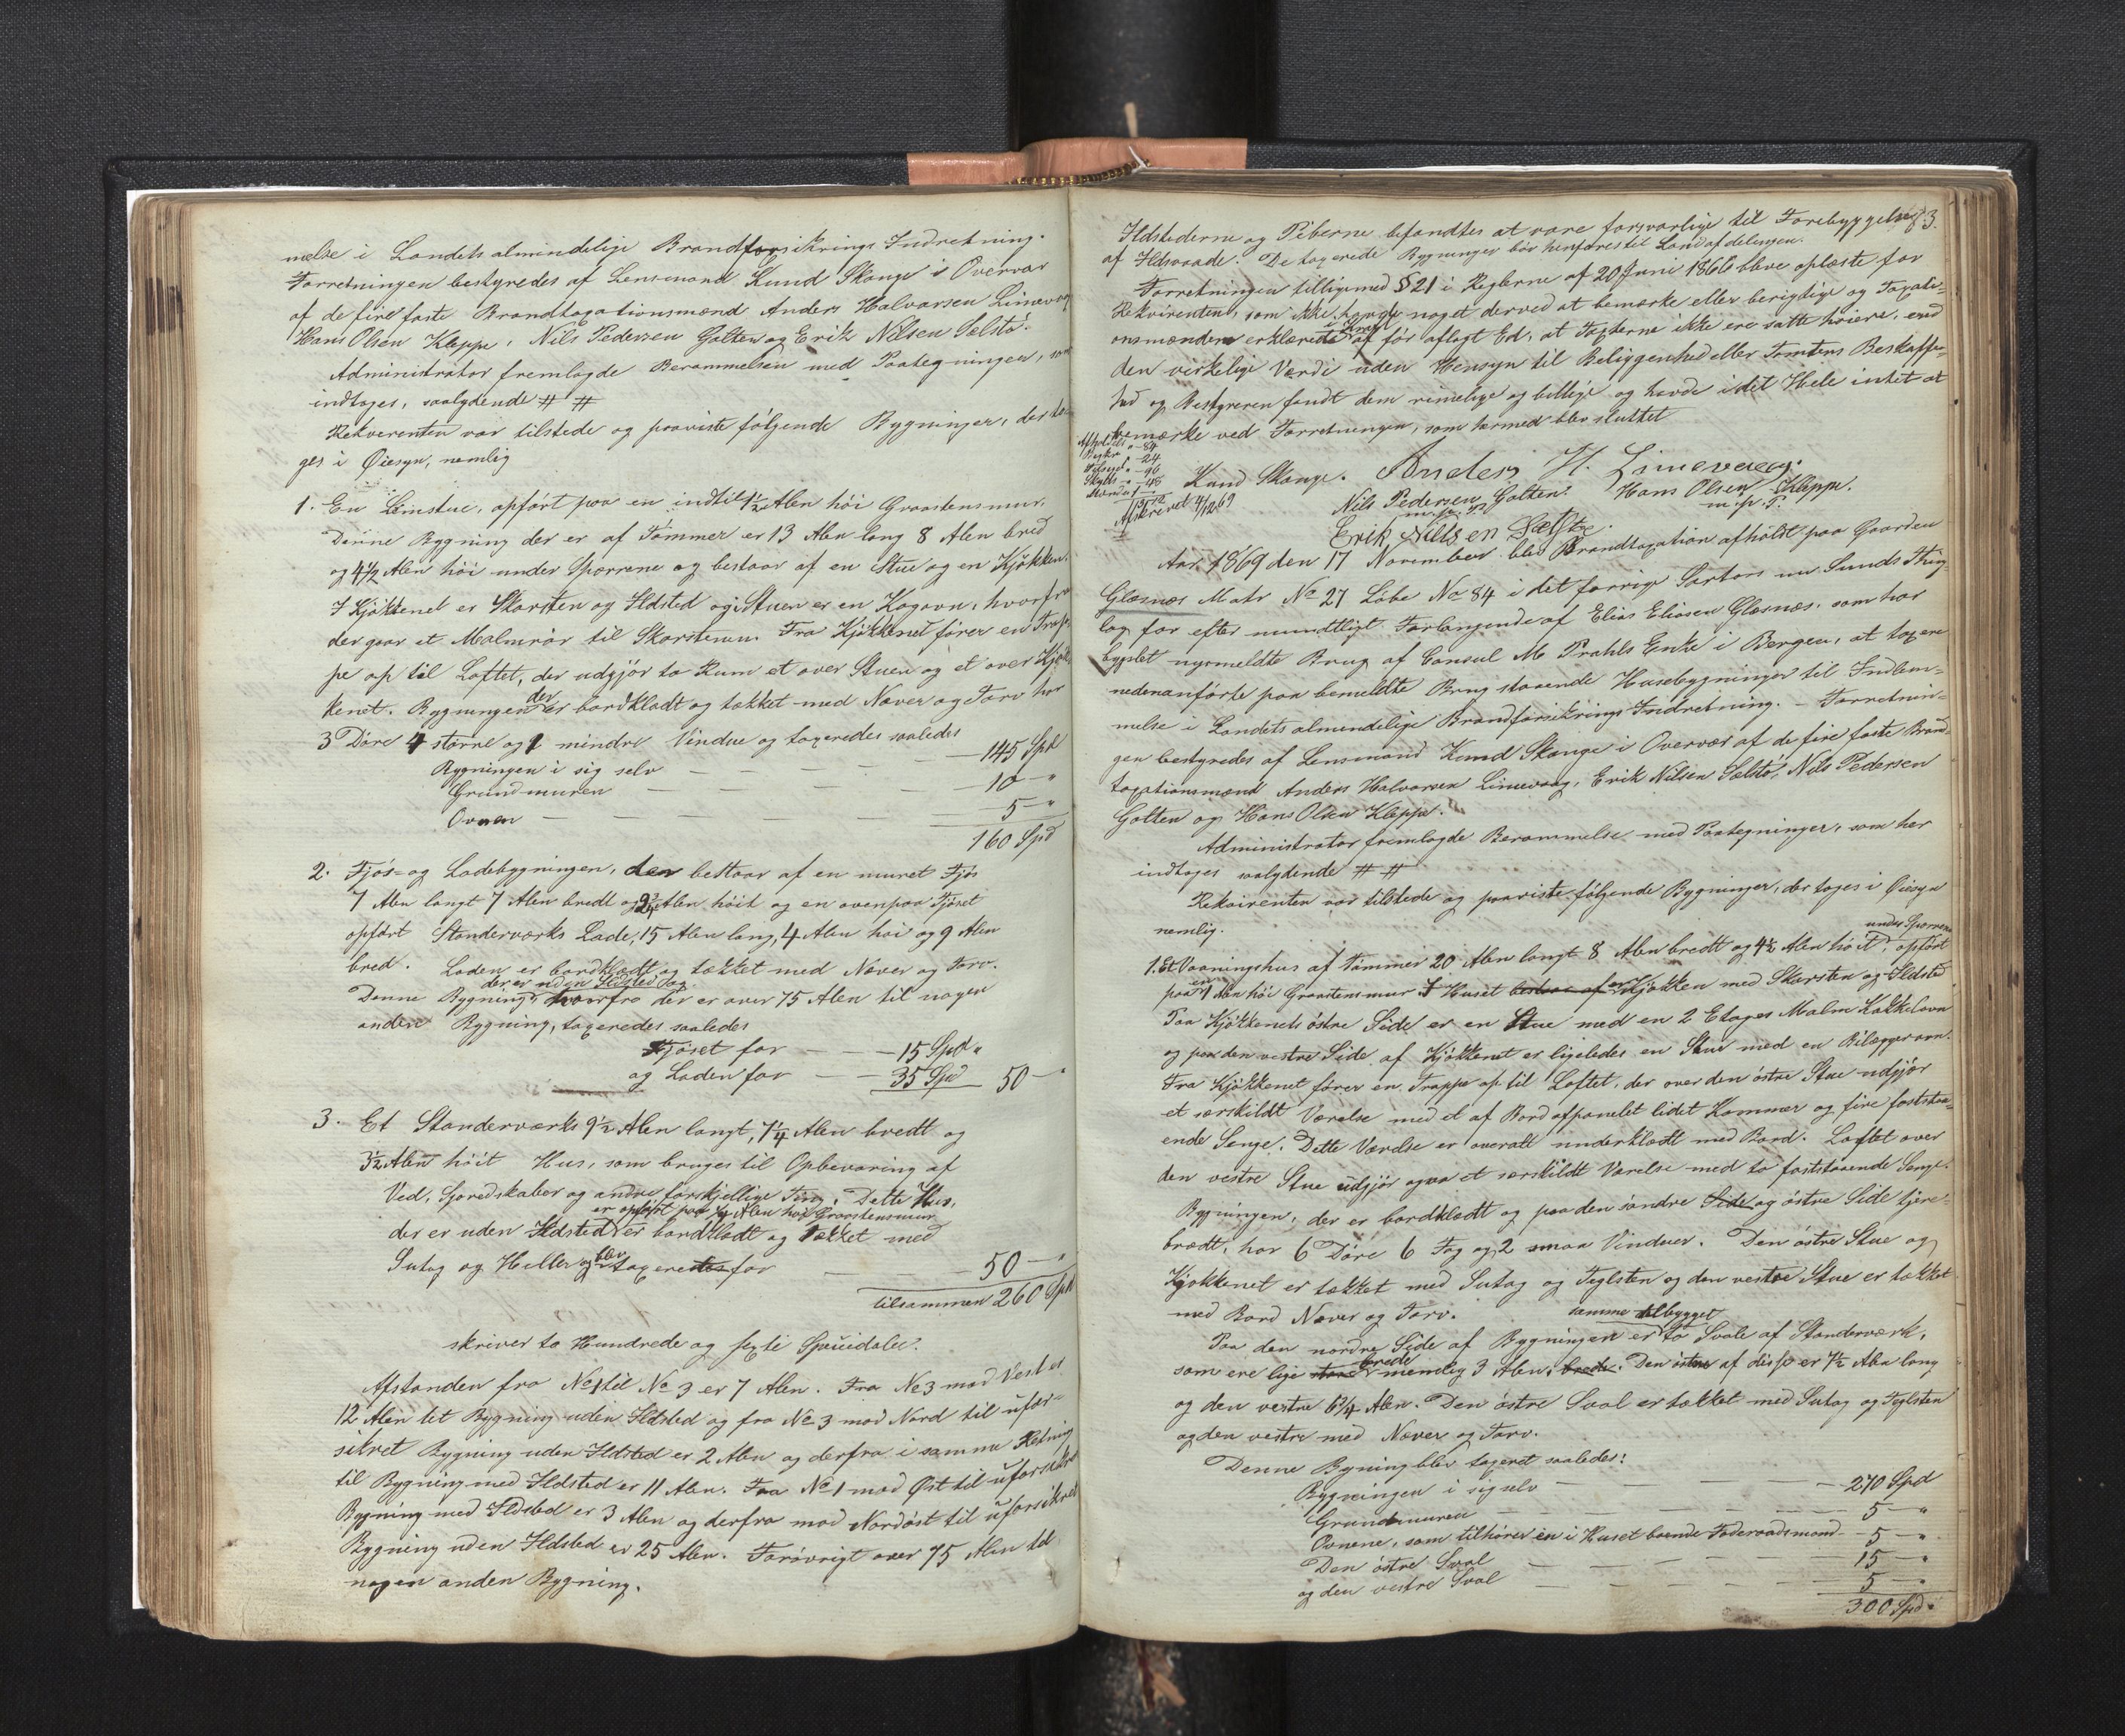 melse i Landets almindelige Brandforsikrings Indretning.
Forretningen bestyredes af Lensmand Knud Skauge i Overvær
af de fire faste Brandtaxationsmænd Anders Halvorsen Limevaag
Hans Olsen Kleppe, Nils Pedersen Golten og Erik Nilsen Sælstø.
Administrator fremlagde Berammelsen med Paategninger, som
indtages, saalydende # #
Rekvirenten var tilstede og paaviste følgende Bygninger, der to-
ges i Øiesyn, nemlig
1. En Lemstue, opført paa en indtil 1½ Alen høi Graastensmur.
Denne Bygning der er af Tømmer er 13 Alen lang 8 Alen bred
og 4½ Alen høi under Sparrene og bestaar af en Stue og en Kjøkken.
I Kjøkkenet er Skorsten og Ildsted og i Stuen er en Kogovn, hvorfra
der gaar et Malmrør til Skorstenen. Fra Kjøkkenet fører en Trap-
pe op til Loftet, der udgjør to Rum et over Stuen og et over Kjøk-
kenet. Bygningen der er bordklædt og tækket med Næver og Torv har
3 Døre 4 større og 1 mindre Vindue og taxeredes saaledes
Bygningen i sig selv — — — — 145 Spd
Grundmuren — — — — 10 — "
Ovnen — — — — 5 — "
160 Spd
2. Fjøs- og Ladebygningen, der bestaar af en muret Fjøs
7 Alen langt 7 Alen bredt og 2¾ Alen høit og en ovenpaa Fjøset
opført Stenderværks Lade, 15 Alen lang, 4 Alen høi og 9 Alen
bred. Laden er bordklædt og tækket med Næver og Torv.
der er uden Ildsted og
Denne Bygning, hvorfra der er over 75 Alen til nogen
anden Bygning, taxeredes saaledes
Fjøset for — — 15 Spd "
og Laden for — — 35 Spd 50 — "
3. Et Stenderværks 9½ Alen langt, 7¼ Alen bredt og
3½ Alen høit Hus, som bruges til Opbevaring af
Ved, Sjøredskaber og andre forskjellige Ting. Dette Hus,
er opført paa ¼ Alen høi Graastensmur
der er uden Ildsted er bordklædt og tækket med
Sutag og Heller og blev taxeredes for — — 50 — "
tilsammen 260 Spd
skriver to Hundrede og sexti Speciedaler.
Afstanden fra No 1 til No 3 er 7 Alen. Fra No 3 mod Vest er
12 Alen til Bygning uden Ildsted og fra No 3 mod Nord til ufor-
sikret Bygning uden Ildsted er 2 Alen og derfra i samme Retning
til Bygning med Ildsted er 11 Alen. Fra No 1 mod Øst til uforsikret
Bygning med Ildsted er 3 Alen og derfra mod Nordøst til uforsikret
Bygning uden Ildsted er 25 Alen. Forøvrigt over 75 Alen til
nogen anden Bygning.
Ildstederne og Piberne befandtes at være forsvarlige til Forebyggelse 3.
af Ildsvaade. De taxerede Bygninger bør henføres til Landafdelingen.
Forretningen tilligemed § 21 i Reglerne af 20 Juni 1866 bleve oplæste for
Rekvirenten, som ikke havde noget derved at bemærke eller berigtige og Taxati-
onsmændene erklærede i Kraft af før aflagt Ed, at Taxterne ikke ere satte høiere, end
den virkelige Værdi uden Hensyn til Beliggenhed eller Tomtens Beskaffen-
hed og Bestyreren fandt dem rimelige og billige og havde i det Hele intet at
bemærke ved Forretningen, som hermed blev sluttet
Knud Skauge. Anders H. Limevaag.
Nils Pedersen Golten. Hans Olsen Kleppe.
m. p. P. m. p. P.
Erik Nilsen Sælstø.
Afskrevet 4/12 69
Aar 1869 den 17 November blev Brandtaxation afholdt paa Gaarden
Glæsnæs Matr No 27 Løbe No 84 i det forrige Sartors nu Sunds Thing-
lag for efter mundtligt Forlangende af Elias Eliasen Glæsnæs, som har
bygslet nysmeldte Brug af Consul M. Prahls Enke i Bergen, at taxere
nedenanførte paa bemeldte Brug staaende Husebygninger til Indlem-
melse i Landets almindelige Brandforsikrings Indretning. — Forretnin-
gen bestyredes af Lensmand Knud Skauge i Overvær af de fire faste Brand-
taxationsmænd Anders Halvorsen Limevaag, Erik Nilsen Sælstø, Nils Pedersen
Golten og Hans Olsen Kleppe.
Administrator fremlagde Berammelse med Paategninger, som her
indtages saalydende # #
Rekvirenten var tilstede og paaviste følgende Bygninger, der toges i Øiesyn
nemlig.
under Sparrene
1. Et Vaaningshus af Tømmer 20 Alen langt 8 Alen bredt og 4½ Alen høit, opført
paa en 1 Alen høi Graastensmur. I Huset bestaar af er Kjøkken med Skorsten og Ildsted
Paa Kjøkkenets østre Side er en Stue med en 2 Etages Malm Kakkelovn
og paa den vestre Side af Kjøkkenet er ligeledes en Stue med en Bilæggerovn.
Fra Kjøkkenet fører en Trappe op til Loftet, der over den østre Stue udgjør
et særskildt Værelse med et af Bord afpanelet lidet Kammer og fire faststaa-
ende Senge. Dette Værelse er overalt underklædt med Bord. Loftet over
den vestre Stue udgjør ogsaa et særskildt Værelse med to faststaaende Senge.
Bygningen, der er bordklædt og paa den søndre Side og østre Side tjære-
brædt, har 6 Døre 6 Fag og 2 smaa Vinduer. Den østre Stue og
Kjøkkenet er tækket med Sutag og Teglsten og den vestre Stue er tækket
med Bord Næver og Torv.
samme tilbygget
Paa den nordre Side af Bygningen er to Svale af Stenderværk,
som ere lige store brede nemlig 3 Alen, brede. Den østre af disse er 7½ Alen lang
og den vestre 6¾ Alen. Den østre Sval er tækket med Sutag og Teglsten
og den vestre med Næver og Torv.
Denne Bygning blev taxeret saaledes:
Bygningen i sig selv — — — — 270 Spd
Grundmuren — — — — 5 — "
Ovnene, som tilhører en i Huset boende Føderaadsmand — 5 — "
Den østre Sval — — — — 15 — "
og den vestre Sval — — — — 5 — "
300 Spd.